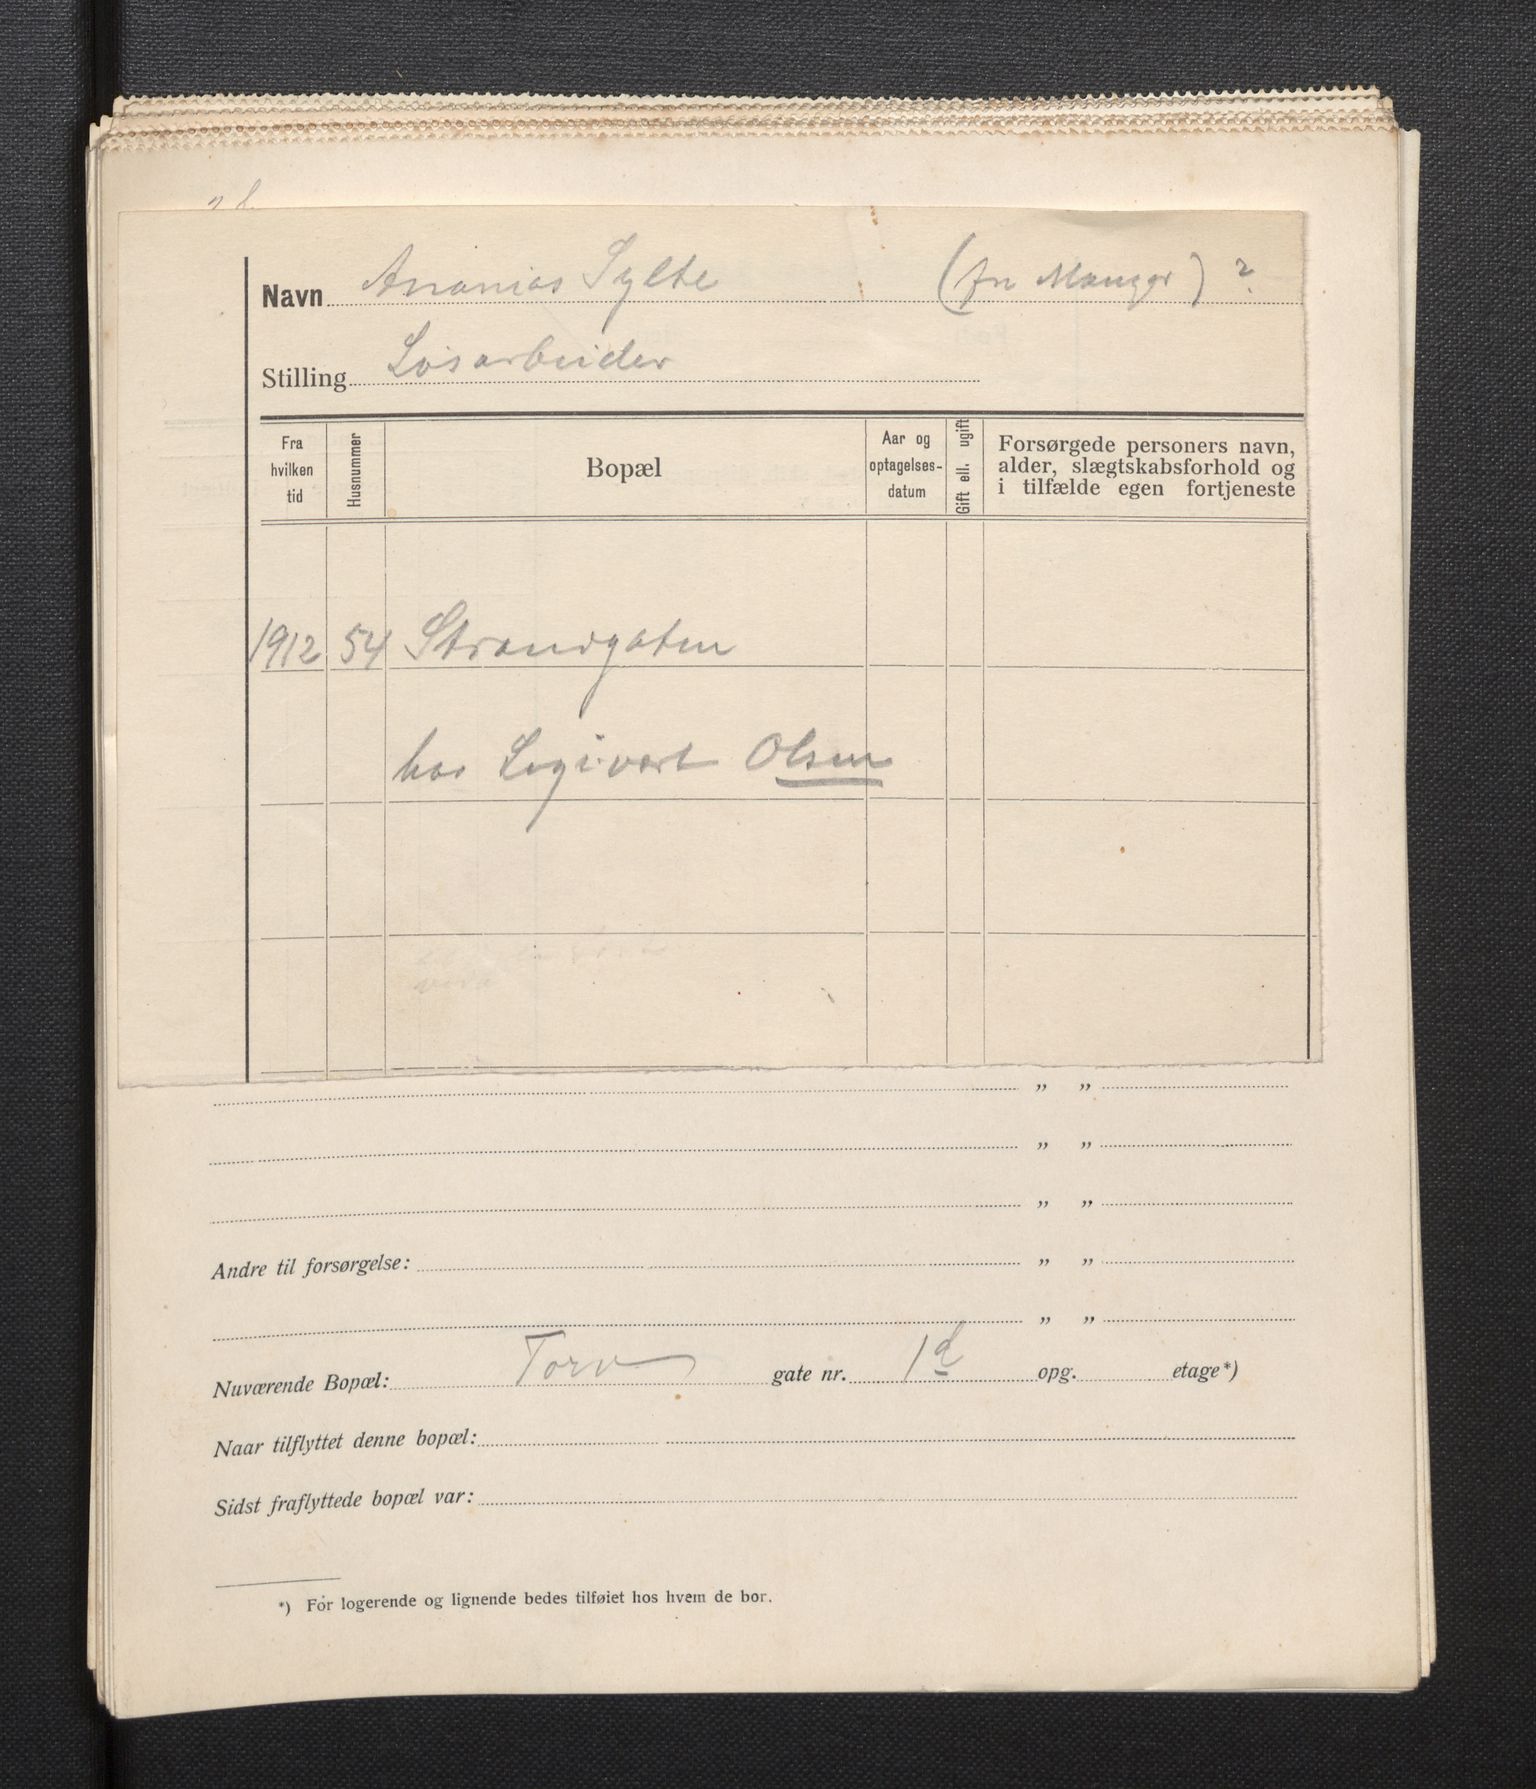 Navn Ananias Sylte (fra Manger) ?
Stilling Løsarbeider
Fra hvilken tid
Husnummer
Bopæl
Aar og optagelses-datum
Gift ell. ugift
Forsørgede personers navn,
alder, slægtskabsforhold og
i tilfælde egen fortjeneste
1912 54 Strandgaten
hos Logivert Olsen
" "
" "
" "
Andre til forsørgelse: " "
" "
Nuværende Bopæl: Torv gate nr. 1d opg. etage*)
Naar tilflyttet denne bopæl:
Sidst fraflyttede bopæl var:
*) For logerende og lignende bedes tilføiet hos hvem de bor.